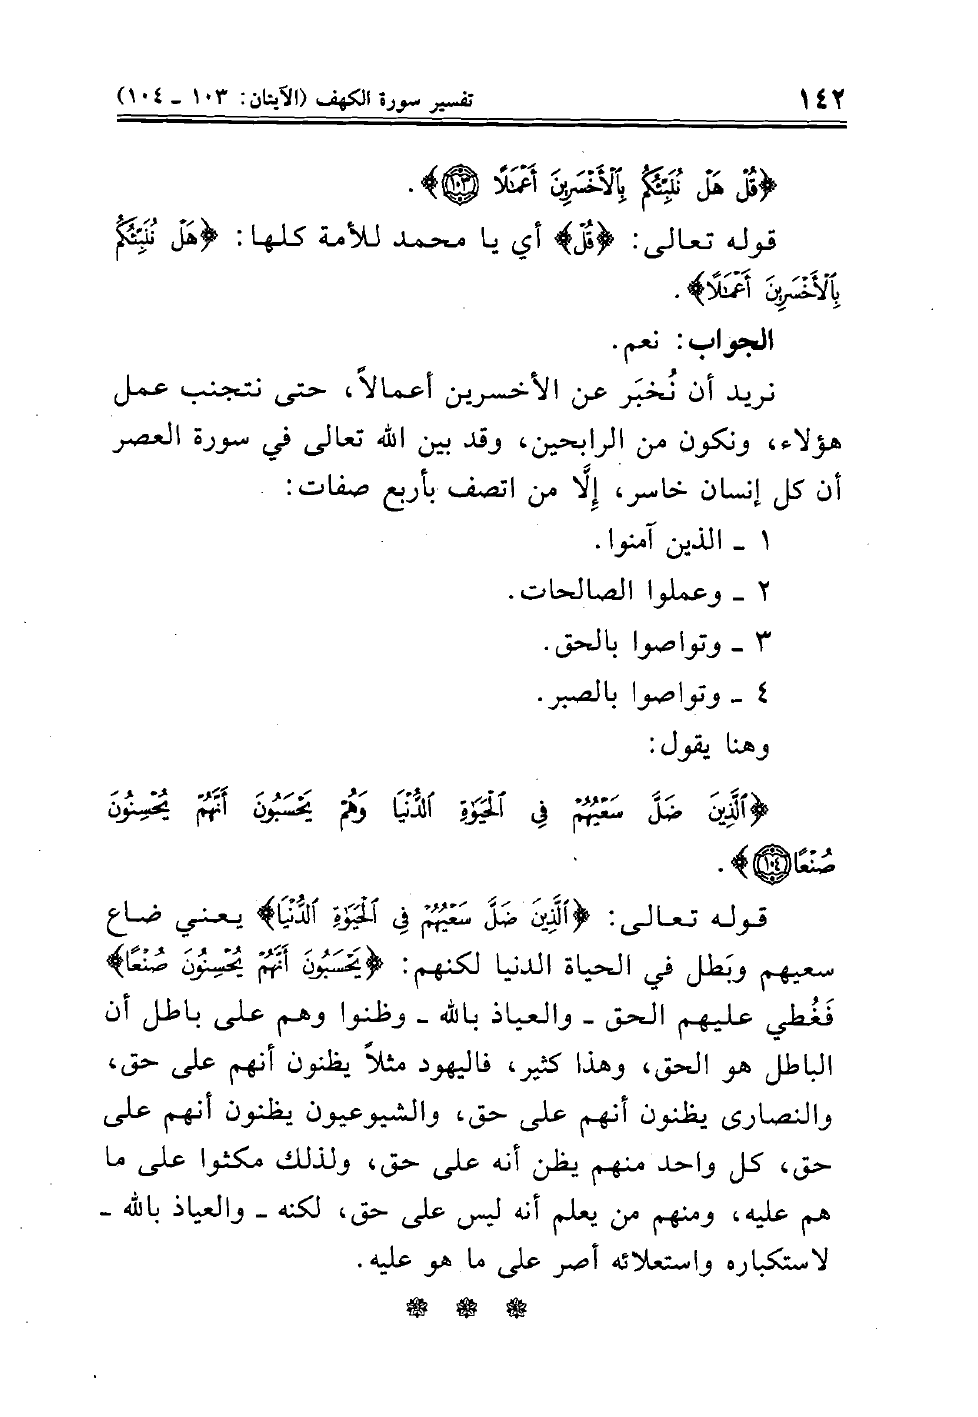 ١٤٢ تفسير سورة الكهف (الآيتان: ١٠٣ ـ ١٠٤)
﴿قُلْ هَلْ نُنَبِّئُكُم بِالْأَخْسَرِينَ أَعْمَالًا ﴿١٠٣﴾﴾.
قوله تعالى: ﴿قُلْ﴾ أي يا محمد للأمة كلها: ﴿هَلْ نُنَبِّئُكُم
بِالْأَخْسَرِينَ أَعْمَالًا﴾.
الجواب: نعم.
نريد أن نُخبَر عن الأخسرين أعمالاً، حتى نتجنب عمل
هؤلاء، ونكون من الرابحين، وقد بين الله تعالى في سورة العصر
أن كل إنسان خاسر، إلَّا من اتصف بأربع صفات:
١ ـ الذين آمنوا.
٢ ـ وعملوا الصالحات.
٣ ـ وتواصوا بالحق.
٤ ـ وتواصوا بالصبر.
وهنا يقول:
﴿الَّذِينَ ضَلَّ سَعْيُهُمْ فِي الْحَيَوٰةِ الدُّنْيَا وَهُمْ يَحْسَبُونَ أَنَّهُمْ يُحْسِنُونَ
صُنْعًا ﴿١٠٤﴾﴾.
قوله تعالى: ﴿الَّذِينَ ضَلَّ سَعْيُهُمْ فِي الْحَيَوٰةِ الدُّنْيَا﴾ يعني ضاع
سعيهم وبَطل في الحياة الدنيا لكنهم: ﴿يَحْسَبُونَ أَنَّهُمْ يُحْسِنُونَ صُنْعًا﴾
فَغُطي عليهم الحق ـ والعياذ بالله ـ وظنوا وهم على باطل أن
الباطل هو الحق، وهذا كثير، فاليهود مثلاً يظنون أنهم على حق،
والنصارى يظنون أنهم على حق، والشيوعيون يظنون أنهم على
حق، كل واحد منهم يظن أنه على حق، ولذلك مكثوا على ما
هم عليه، ومنهم من يعلم أنه ليس على حق، لكنه ـ والعياذ بالله ـ
لاستكباره واستعلائه أصر على ما هو عليه.